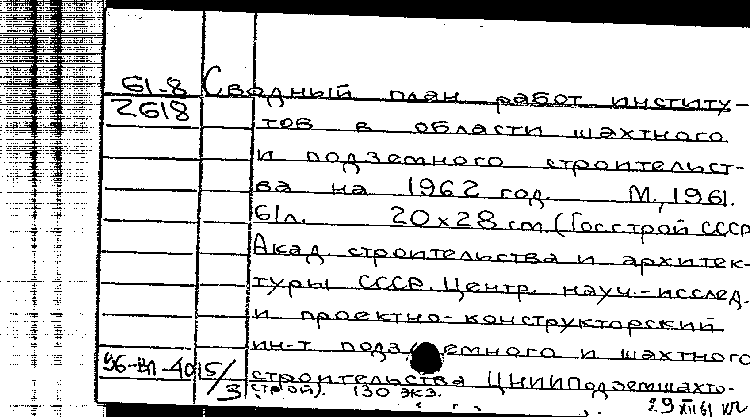 61-8 Сводный план работ институ-
2618
тов в области шахтного
и подземного строительст-
ва на 1962 год. М., 1961.
61л. 20×28 см (Госстрой СССР
Акад строительства и архитек-
туры СССР. Центр. науч.-исслед.
и проектно-конструкторский
ин-т подземного и шахтного
строительства ЦНИИПодземшахто-
строй). 130 экз.